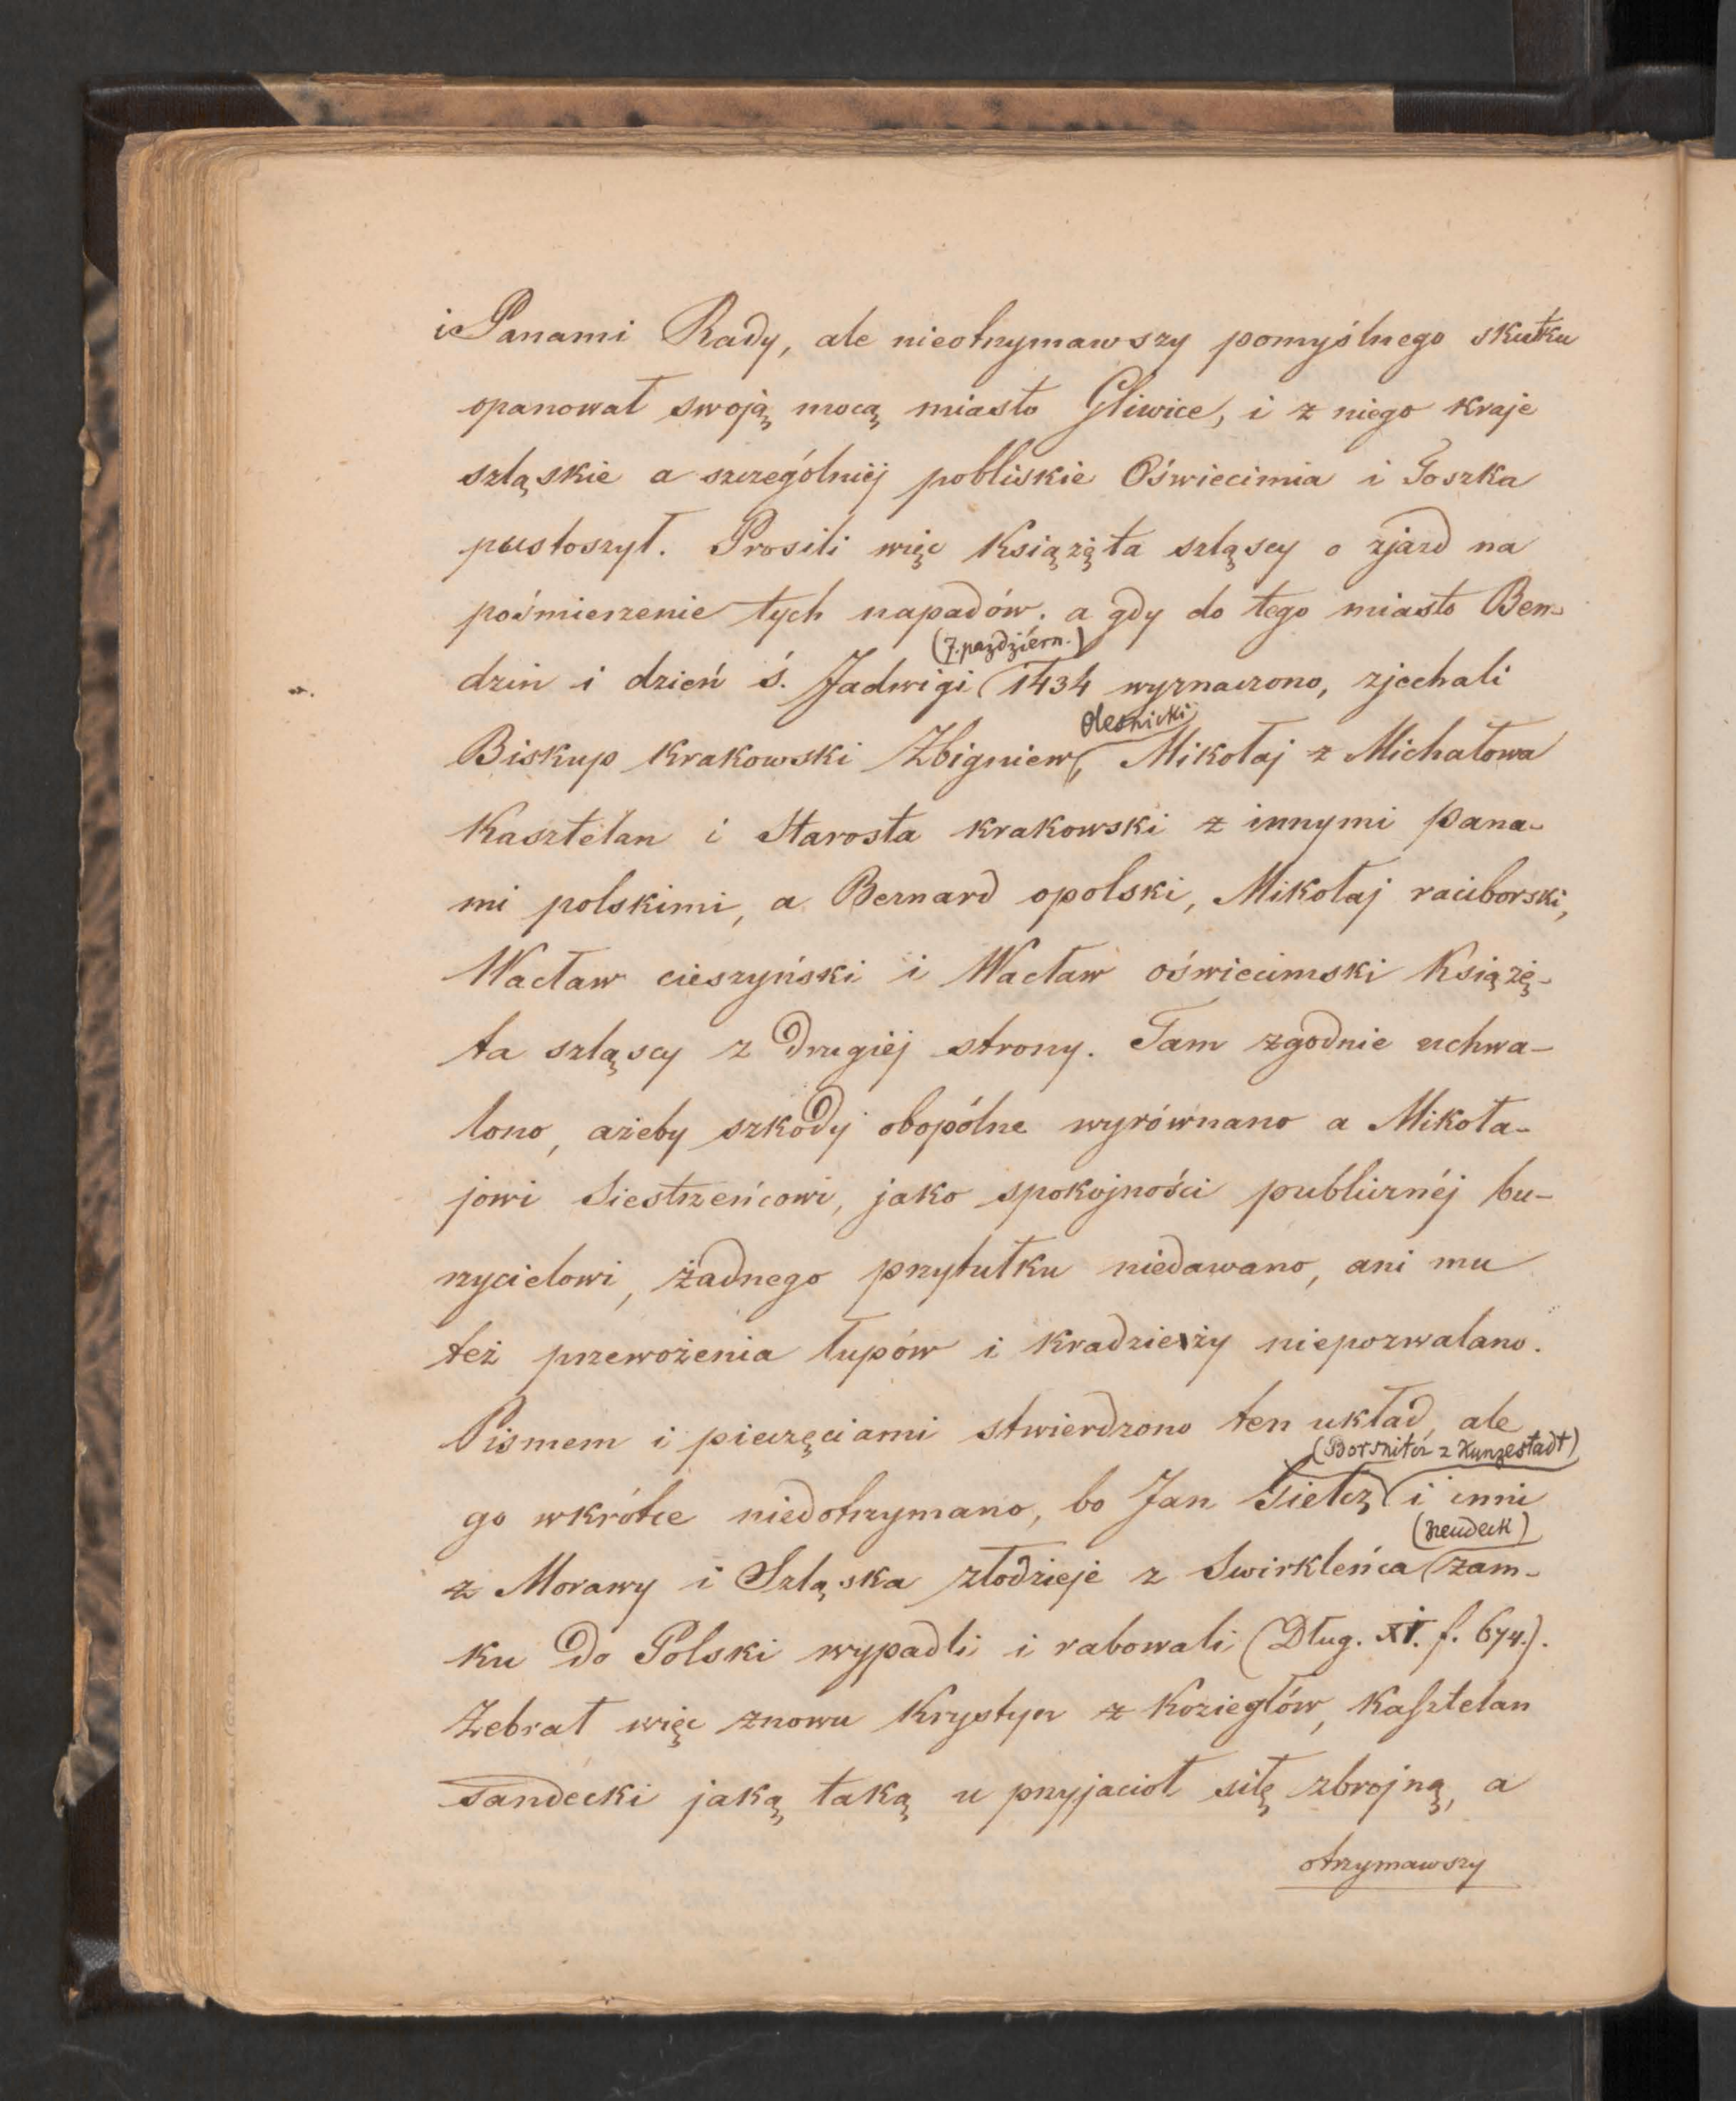 i Panami Rady, ale nieotrzymawszy pomyślnego skutku
opanował swoją mocą miasto Gliwice, i z niego kraje
szląskie a szczególniéj pobliskie Oświecimia i Toszka
pustoszył. Prosili więc Książęta szląscy o zjazd na
pośmierzenie tych napadów. a gdy do tego miasto Ben-
(7. paździérn.)
dzin i dzień ś. Jadwigi 1434 wyznaczono, zjechali
Olesnicki
Biskup krakowski Zbigniew, Mikołaj z Michałowa
Kasztelan i Starosta krakowski z innymi pana-
mi polskimi, a Bernard opolski, Mikołaj raciborski,
Wacław cieszyński i Wacław oświecimski Książę-
ta szląscy z drugiéj strony. Tam zgodnie uchwa-
lono, ażeby szkody obopólne wyrównano a Mikoła-
jowi Siestrzeńcowi, jako spokojności publicznéj bu-
rzycielowi, żadnego przytułku niedawano, ani mu
też przewożenia łupów i kradzieży niepozwalano.
Pismem i pieczęciami stwierdzono ten układ, ale
(Borsnitcz z Kunzestadt)
go wkrótce niedotrzymano, bo Jan Sielcz i inni
(Neudeck)
z Morawy i Szląska złodzieje z Swirkleńca zam-
ku do Polski wypadli i rabowali (Dług. XI. f. 674.).
Zebrał więc znowu Krystyn z Koziegłów, Kasztelan
sandecki jaką taką u przyjaciół siłę zbrojną, a
otrzymawszy